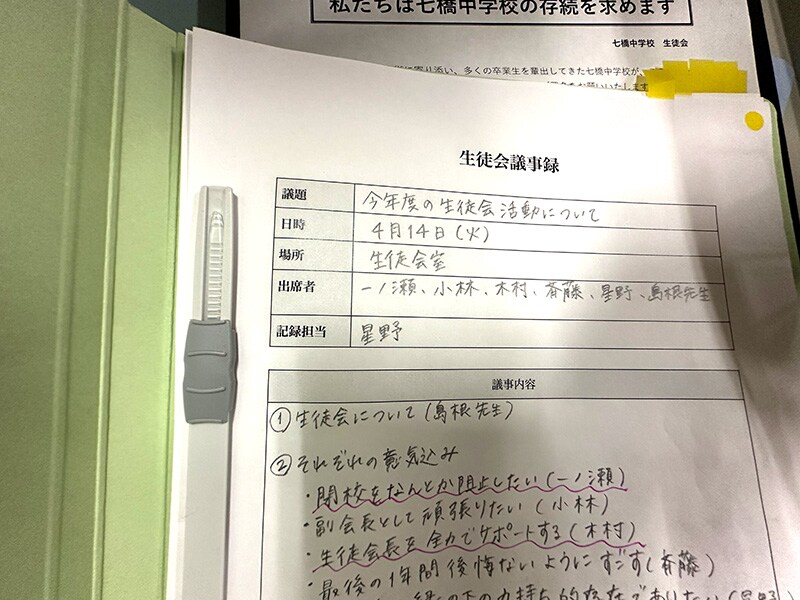 私たちは七橋中学校の存続を求めます
七橋中学校　生徒会
い、多くの卒業生を輩出してきた七橋中学校が、
をお願いいたします
生徒会議事録
議題 今年度の生徒会活動について
日時 4月14日(火)
場所 生徒会室
出席者 一ノ瀬、小林、木村、斉藤、星野、島根先生
記録担当 星野
議事内容
① 生徒会について(島根先生)
② それぞれの意気込み
・閉校をなんとか阻止したい(一ノ瀬)
・副会長として頑張りたい(小林)
・生徒会長を全力でサポートする(木村)
・最後の1年間後悔ないようにすごす(斉藤)
縁の下の力持ち的存在でありたい(星野)